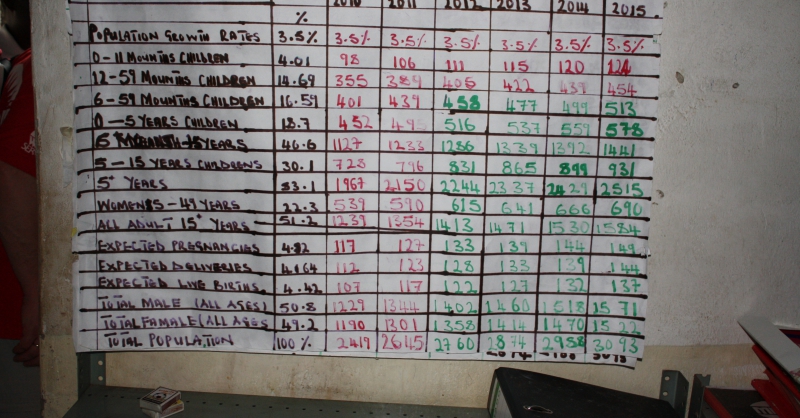 % 2010 2011 2012 2013 2014 2015
POPULATION GROWTH RATES 3.5% 3.5% 3.5% 3.5% 3.5% 3.5% 3.5%
0-11 MOUNTHS CHILDREN 4.01 98 106 111 115 120 124
12-59 MOUNTHS CHILDREN 14.69 355 389 405 422 437 454
6-59 MOUNTHS CHILDREN 16.59 401 439 458 477 499 513
0-5 YEARS CHILDREN 18.7 452 495 516 537 559 578
6 15 YEARS 46.6 1127 1233 1286 1339 1392 1441
5-15 YEARS CHILDRENS 30.1 728 796 831 865 899 931
5+ YEARS 83.1 1967 2150 2244 2337 2429 2515
WOMEN 15-49 YEARS 22.3 539 590 615 641 666 690
ALL ADULT 15+ YEARS 51.2 1239 1354 1413 1471 1530 1584
EXPECTED PREGNANCIES 4.82 117 127 133 139 144 149
EXPECTED DELIVERIES 4.64 112 123 128 133 139 144
EXPECTED LIVE BIRTHS 4.42 107 117 122 127 132 137
TOTAL MALE (ALL AGES) 50.8 1229 1344 1402 1460 1518 1571
TOTAL FAMALE (ALL AGES 49.2 1190 1301 1358 1414 1470 1522
TOTAL POPULATION 100% 2419 2645 2760 2874 2988 3093